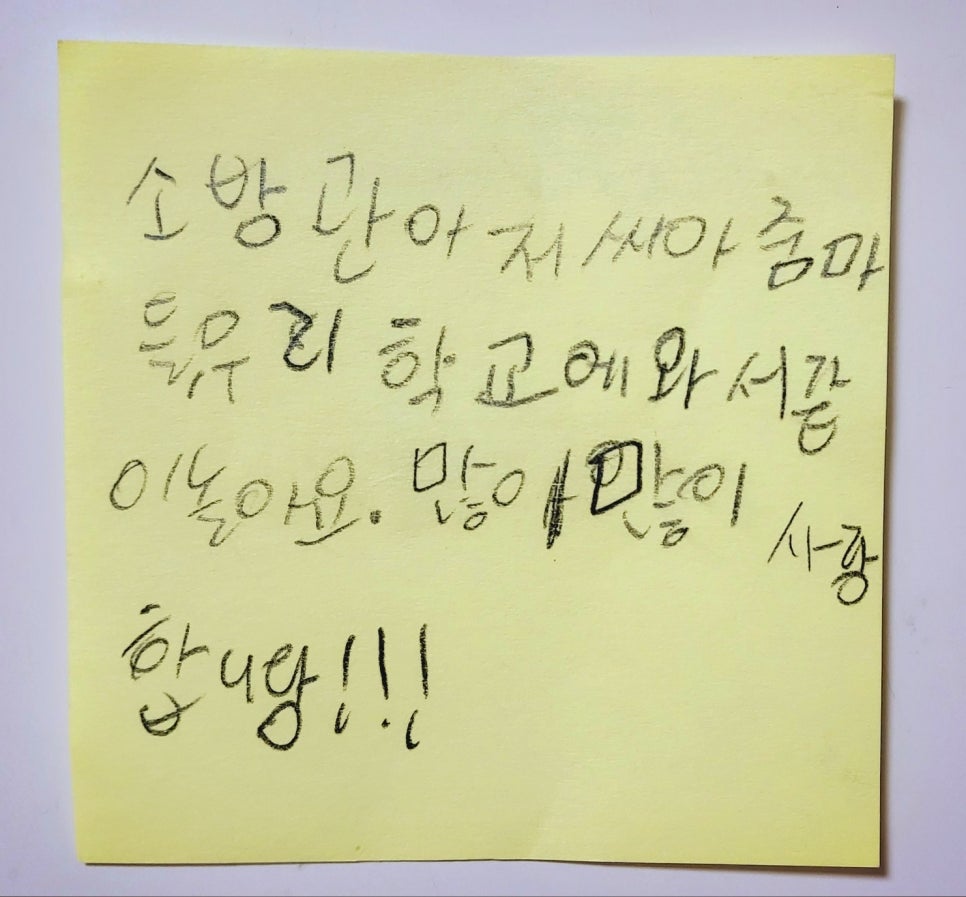 소방관아저씨아줌마
우리 학교에와서
많이많이 사랑
합니당!!!